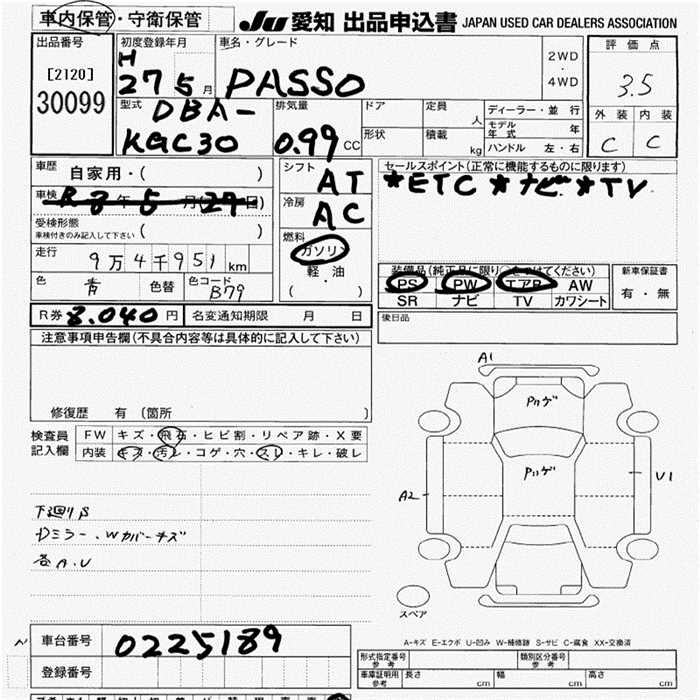 車内保管・守衛保管
JU 愛知 出品申込書 JAPAN USED CAR DEALERS ASSOCIATION
出品番号
[2120]
30099
初度登録年月
H
27 5 月
車名・グレード
PASSO
2WD
・
4WD
評価点
3.5
外装 内装
C C
型式
DBA-
KGC30
排気量
0.99 CC
ドア
定員
人
形状
積載
kg
ディーラー・並行
モデル年式 年
ハンドル 左・右
車歴 自家用・( )
車検 R 8 年 5 月(27日)
受検形態
車検付きのみ記入して下さい ( )
走行 9万4千951 km
色 青 色替 色コード B79
シフト AT
冷房 AC
燃料
ガソリン
軽・油
( ・ )
セールスポイント(正常に機能するものに限ります)
*ETC *ナビ *TV
装備品(純正品に限り○をつけてください)
PS PW エアB AW
SR ナビ TV カワシート
新車保証書
有・無
R券 8.040 円 名変通知期限 月 日
後日品
注意事項申告欄(不具合内容等は具体的に記入して下さい)
修復歴 有(箇所 )
検査員
記入欄
FW キズ・飛石・ヒビ割・リペア跡・X要
内装 キズ・汚レ・コゲ・穴・スレ・キレ・破レ
下廻りS
Dミラー、Wカバーキズ
各A.U
A1
Pハゲ
Pハゲ
A2
U1
スペア
A-キズ E-エクボ U-凹み W-補修跡 S-サビ C-腐食 XX-交換済
車台番号 0225189
登録番号
形式指定番号
参考
類別区分番号
参考
車庫証明用
参考
長さ cm 幅 cm 高さ cm